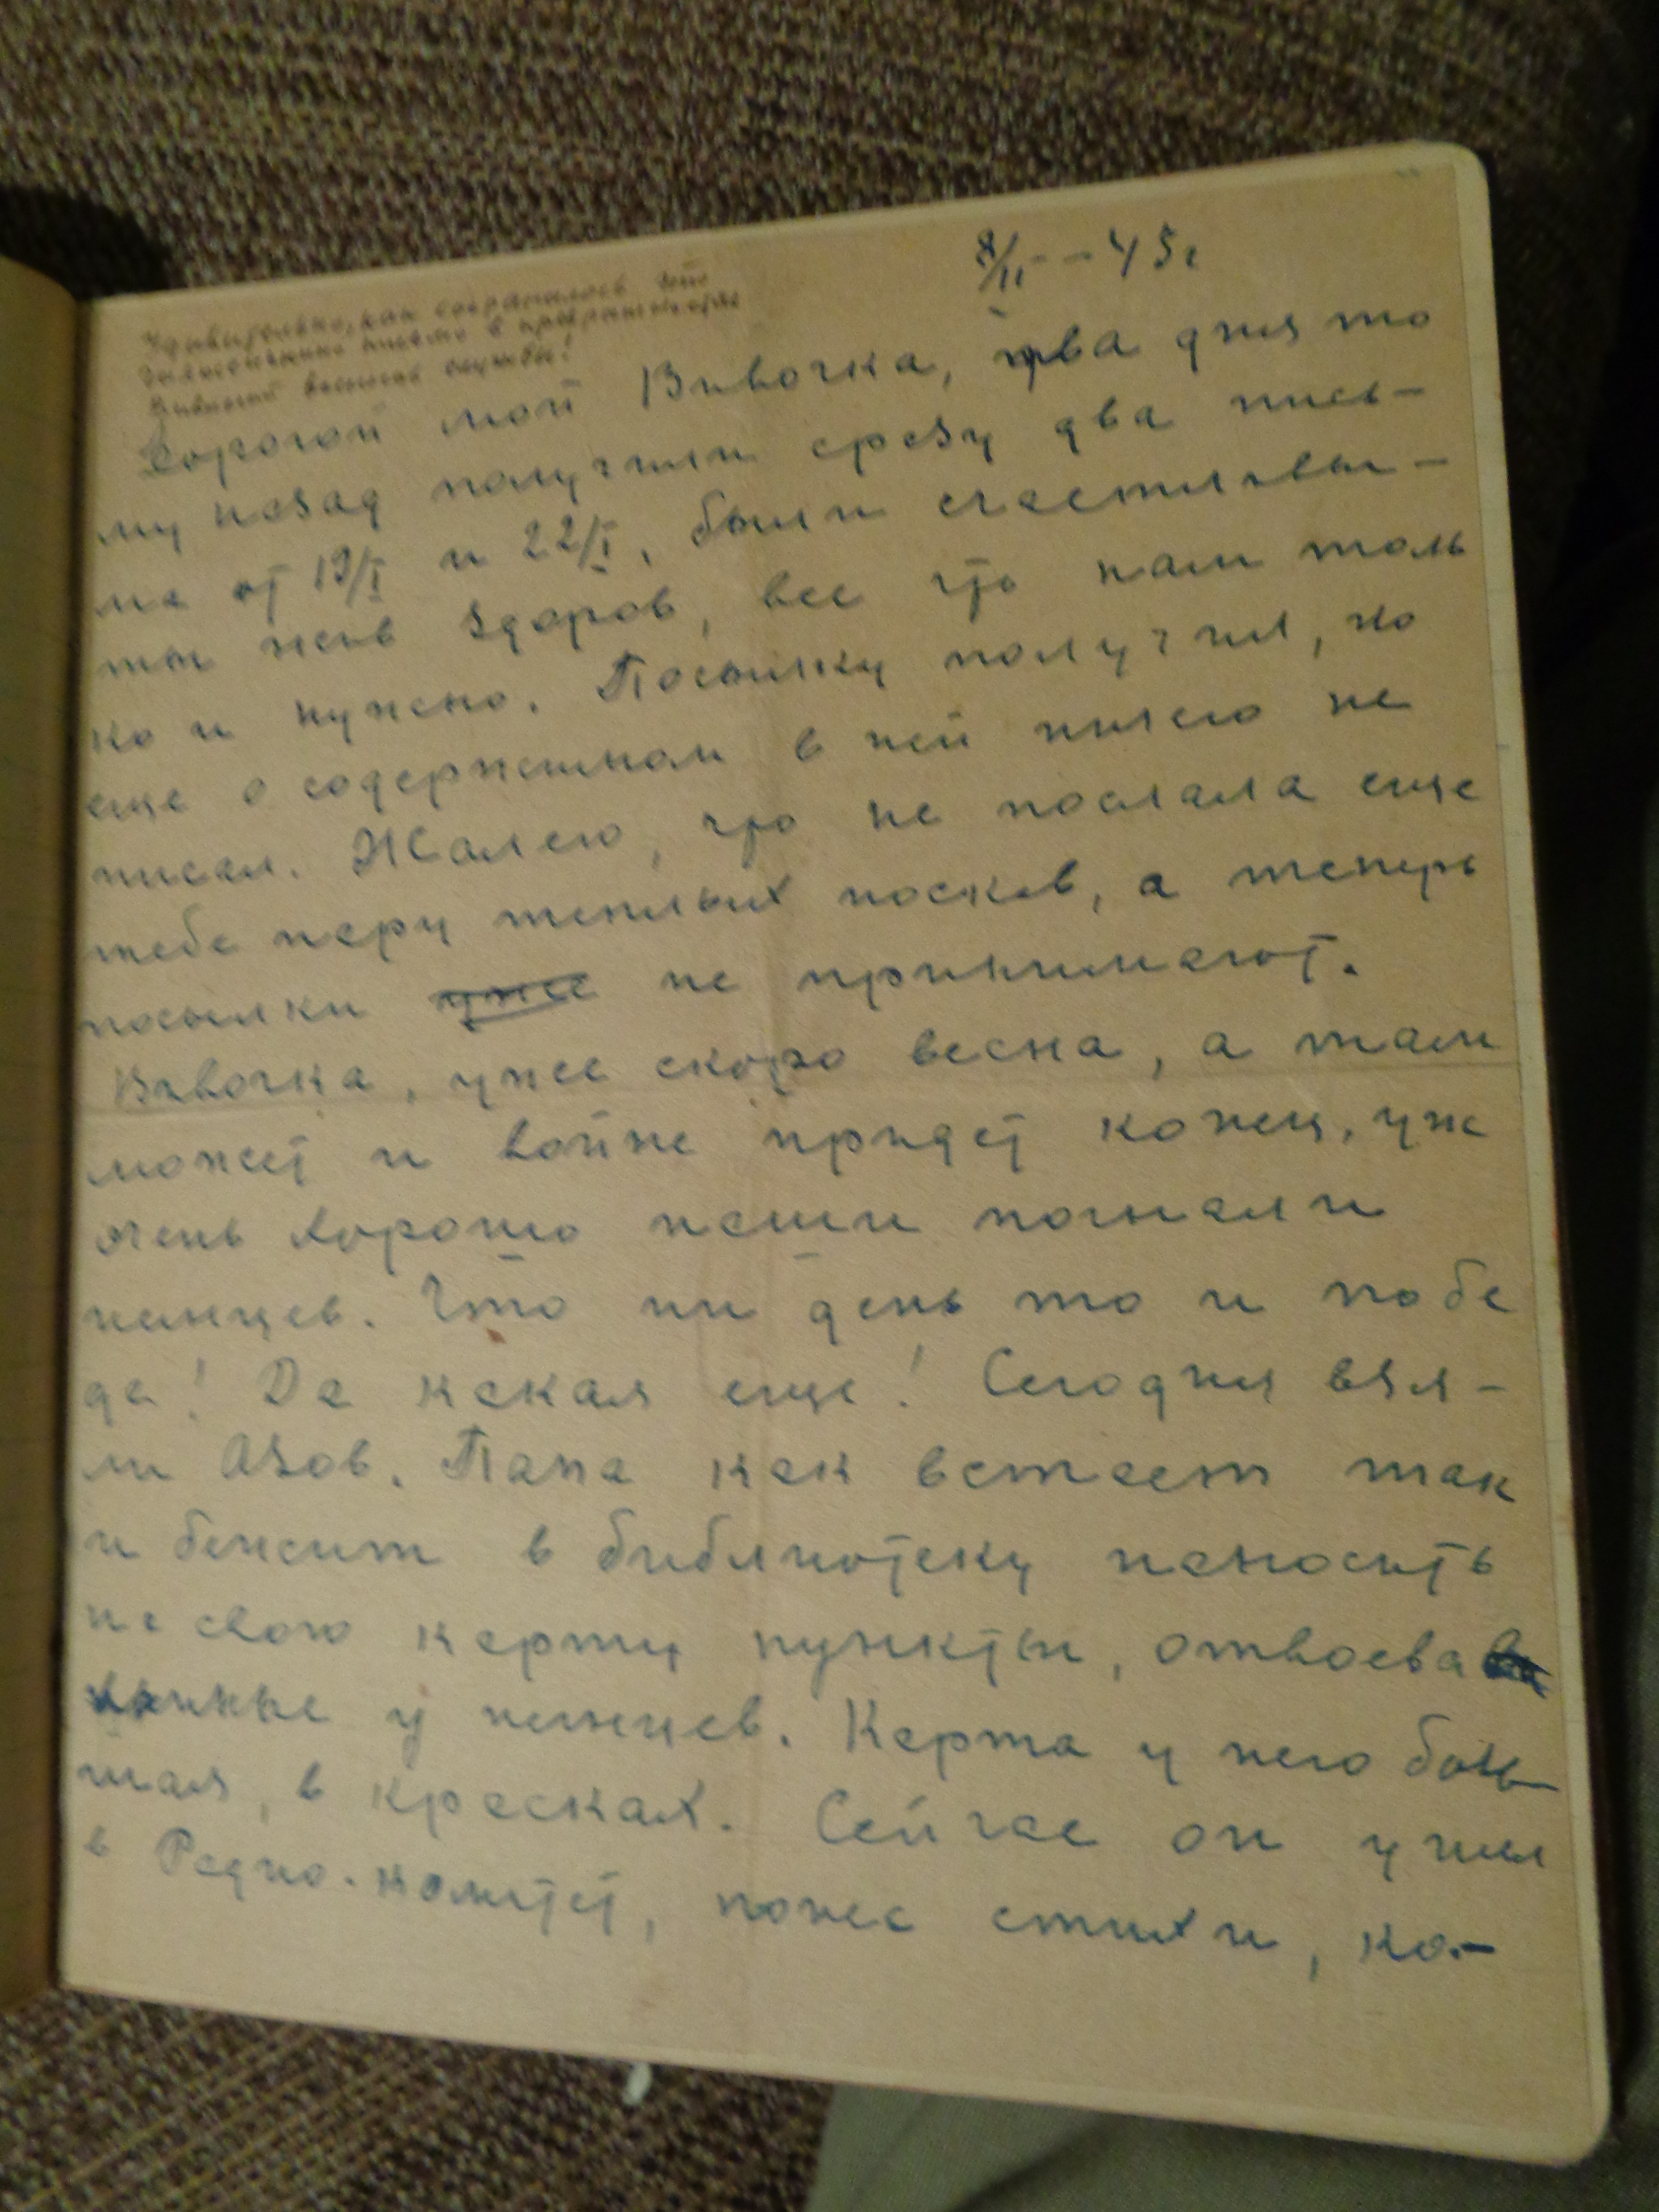 8/II - 43г
Удивительно, как сохранилось это
письмо в
военной службы!
Дорогой мой Вивочка, два дня то
му назад получили сразу два пись-
ма от 19/I и 22/I, были счастливы -
ты жив здоров, все что нам толь
ко и нужно. Посылку получил, но
еще о содержимом в ней ничего не
писал. Жалею, что не послала еще
тебе пару теплых носков, а теперь
посылки уже не принимают.
Вивочка, уже скоро весна, а там
может и войне придет конец, уж
очень хорошо наши погнали
немцев. Что ни день то и побе
да! Да какая еще! Сегодня взя-
ли Азов. Папа как встает так
и бежит в библиотеку наносить
на свою карту пункты, отвоева
нные у немцев. Карта у него боль-
шая, в красках. Сейчас он ушел
в Радио-комитет, понес стихи, ко-